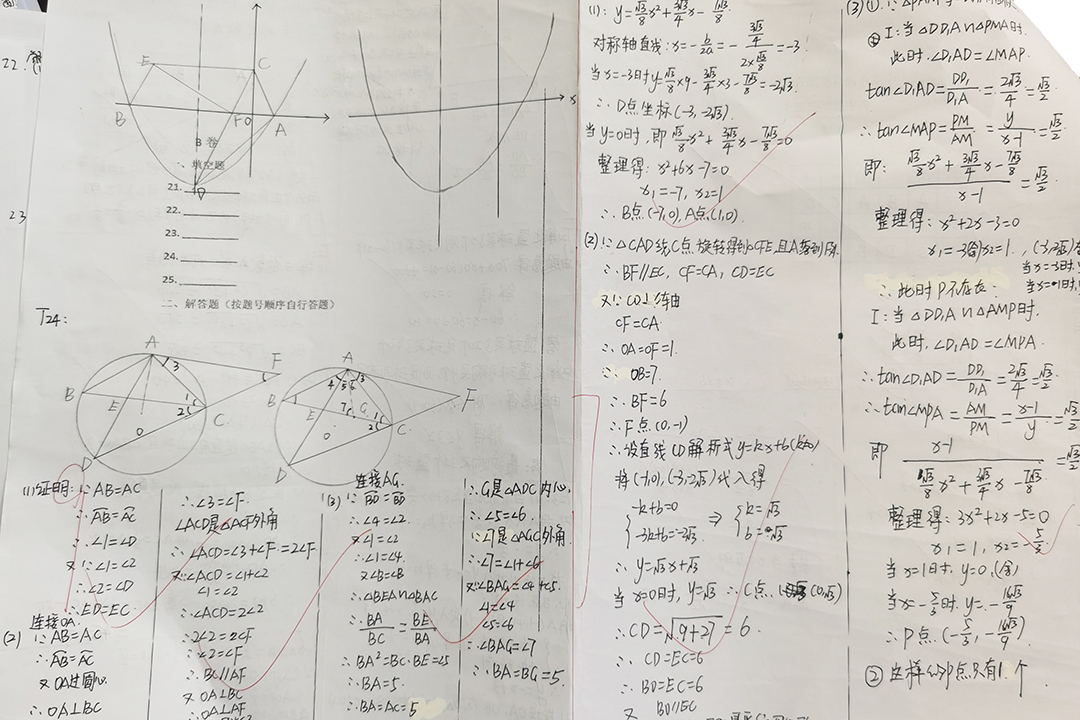 22.
23
E
C
A
B
F
O
A
D
x
B 卷
一、填空题
21.
22.
23.
24.
25.
二、解答题（按题号顺序自行答题）
T24:
A
3
F
B
E
1
2
C
O
D
A
4
5
6
3
F
B
1
E
7
G
1
2
C
O
D
(1)证明: ∵AB=AC
∴AB=AC
∴∠1=∠D
又∵∠1=∠2
∴∠2=∠D
∴ED=EC.
连接OA.
(2) ∵AB=AC
∴AB=AC
又OA过圆心.
∴OA⊥BC
∴∠3=∠F.
∠ACD是△ACF外角
∴∠ACD=∠3+∠F=2∠F
又∠ACD=∠1+∠2
∠1=∠2
∴∠ACD=2∠2
∴2∠2=2∠F
∴∠2=∠F
∴BC∥AF
又OA⊥BC
∴OA⊥AF
(3) ∵BD=BD
∴∠4=∠2
又∠1=∠2
∴∠1=∠4.
又∠B=∠B
∴△BEA∽△BAC
∴BA/BC=BE/BA
∴BA²=BC·BE=25
∴BA=5.
∴BA=AC=5
连接AG.
∴G是△ADC内心.
∴∠5=∠6.
∵∠7是△AGC外角.
∴∠7=∠1+∠6
又∵∠BAG=∠4+∠5.
∠1=∠4
∠5=∠6
∴∠BAG=∠7
∴BA=BG=5.
(1): y=√3/8x²+3√3/4x-7√3/8.
对称轴直线: x=-b/2a=-(3√3/4)/(2×√3/8)=-3
当x=-3时y=√3/8×9-3√3/4×3-7√3/8=-2√3.
∴D点坐标(-3,-2√3).
当y=0时, 即√3/8x²+3√3/4x-7√3/8=0
整理得: x²+6x-7=0
x₁=-7, x₂=1
∴B点(-7,0),A点(1,0).
(2)∵△CAD绕C点旋转得到△CFE,且A落到F点.
∴BF∥EC, CF=CA, CD=EC
又∵CO⊥x轴
CF=CA.
∴OA=OF=1.
∴OB=7.
∴BF=6
∴F点(0,-1)
∴设直线CD解析式y=kx+b(k≠0)
将(-1,0),(-3,-2√3)代入得
-k+b=0
-3k+b=-2√3.
⇒ k=√3
b=√3
∴y=√3x+√3
当x=0时, y=√3 ∴C点(0,√3)
∴CD=√(9+27)=6.
∴CD=EC=6
∴BD=EC=6
又 BD∥EC
(3)①
I:当△DD₁A∽△PMA时.
此时∠D₁AD=∠MAP.
tan∠D₁AD=DD₁/D₁A=2√3/4=√3/2
∴tan∠MAP=PM/AM=y/(x-1)=√3/2
即: (√3/8x²+3√3/4x-7√3/8)/(x-1)=√3/2
整理得: x²+2x-3=0
x₁=-3(舍)x₂=1.
∴此时P不存在.
I:当△DD₁A∽△AMP时.
此时,∠D₁AD=∠MPA.
∴tan∠D₁AD=DD₁/D₁A=2√3/4=√3/2
∴tan∠MPA=AM/PM=(x-1)/y=√3/2
即 (x-1)/(√3/8x²+3√3/4x-7√3/8)=√3/2
整理得: 3x²+2x-5=0
x₁=1, x₂=-5/3
当x=1时, y=0,(舍)
当x=-5/3时. y=-16√3/9
∴P点.(-5/3,-16√3/9)
②这样的P点只有1个